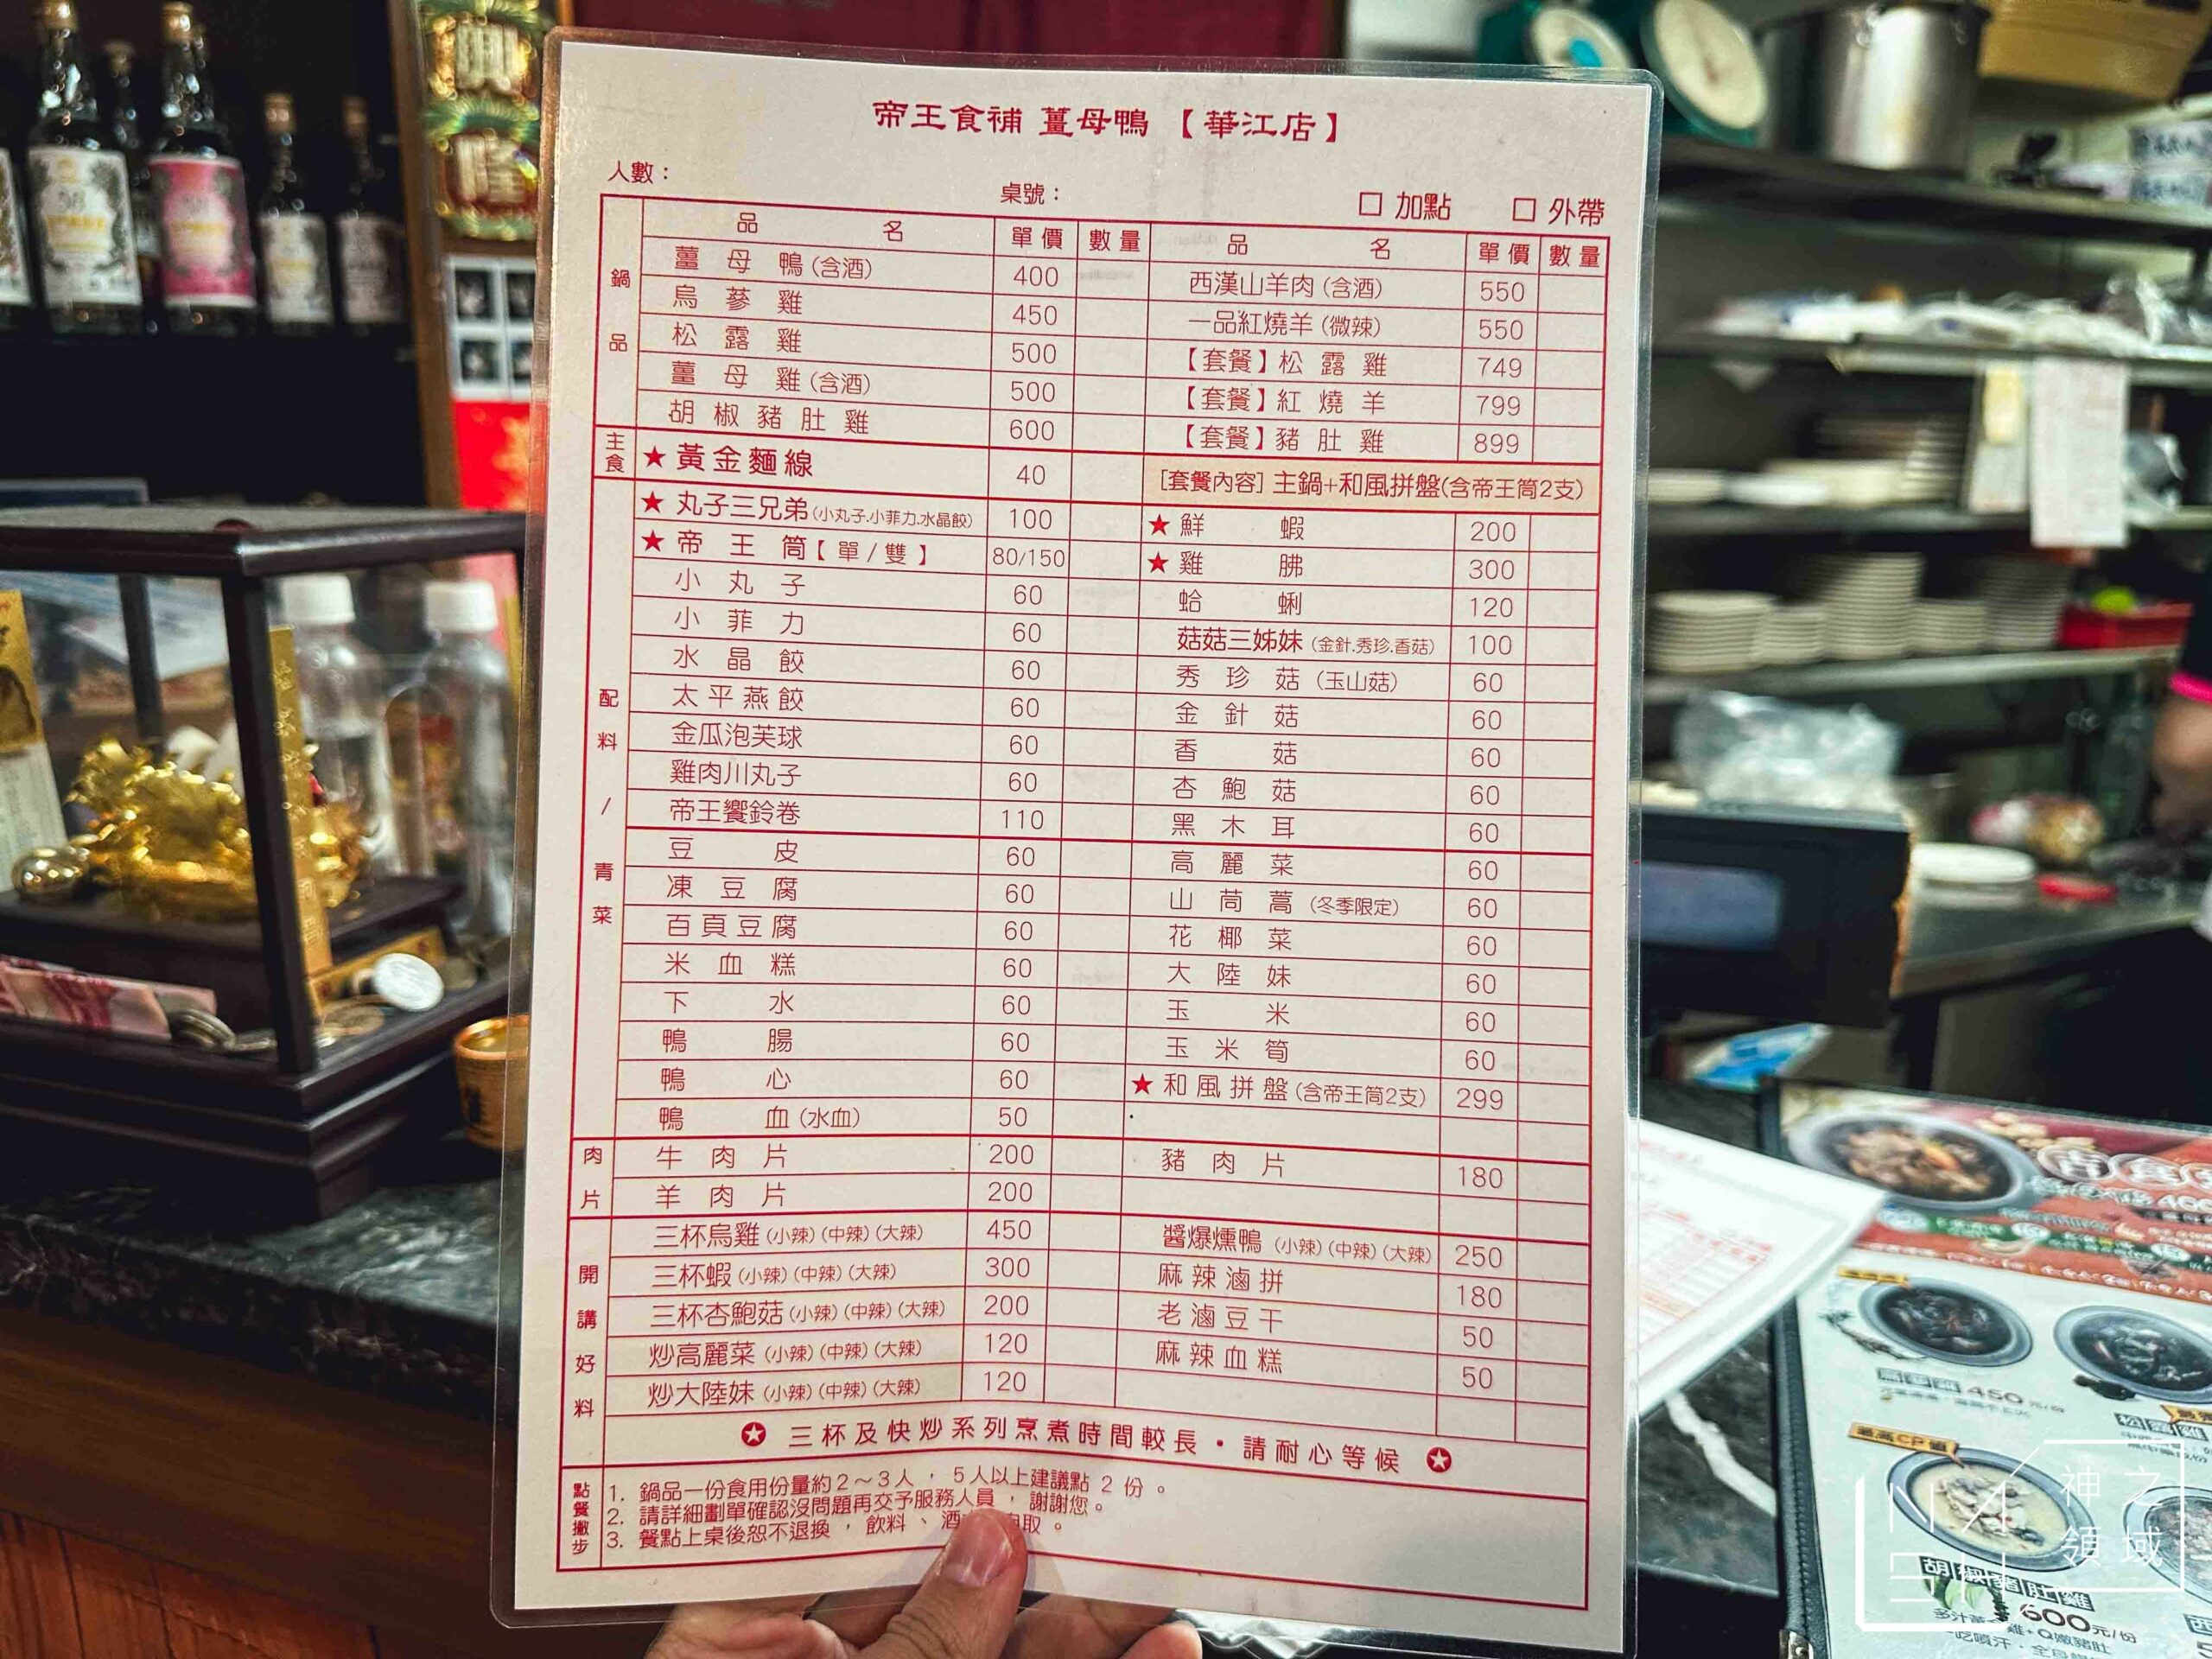 帝王食補 薑母鴨 【華江店】
人數：
桌號：
□ 加點 □ 外帶
品名 單價 數量 品名 單價 數量
鍋品
薑母鴨(含酒) 400 西漢山羊肉(含酒) 550
烏蔘雞 450 一品紅燒羊(微辣) 550
松露雞 500 【套餐】松露雞 749
薑母雞(含酒) 500 【套餐】紅燒羊 799
胡椒豬肚雞 600 【套餐】豬肚雞 899
主食
★黃金麵線 40 [套餐內容] 主鍋+和風拼盤(含帝王筒2支)
配料/青菜
★丸子三兄弟(小丸子.小菲力.水晶餃) 100 ★鮮蝦 200
★帝王筒【單/雙】 80/150 ★雞腗 300
小丸子 60 蛤蜊 120
小菲力 60 菇菇三姊妹(金針.秀珍.香菇) 100
水晶餃 60 秀珍菇(玉山菇) 60
太平燕餃 60 金針菇 60
金瓜泡芙球 60 香菇 60
雞肉川丸子 60 杏鮑菇 60
帝王饗鈴卷 110 黑木耳 60
豆皮 60 高麗菜 60
凍豆腐 60 山茼蒿(冬季限定) 60
百頁豆腐 60 花椰菜 60
米血糕 60 大陸妹 60
下水 60 玉米 60
鴨腸 60 玉米筍 60
鴨心 60 ★和風拼盤(含帝王筒2支) 299
鴨血(水血) 50
肉片
牛肉片 200 豬肉片 180
羊肉片 200
開講好料
三杯烏雞(小辣)(中辣)(大辣) 450 醬爆燻鴨(小辣)(中辣)(大辣) 250
三杯蝦(小辣)(中辣)(大辣) 300 麻辣滷拼 180
三杯杏鮑菇(小辣)(中辣)(大辣) 200 老滷豆干 50
炒高麗菜(小辣)(中辣)(大辣) 120 麻辣血糕 50
炒大陸妹(小辣)(中辣)(大辣) 120
✪ 三杯及快炒系列烹煮時間較長・請耐心等候 ✪
點餐撇步
1. 鍋品一份食用份量約2～3人，5人以上建議點 2 份。
2. 請詳細劃單確認沒問題再交予服務人員，謝謝您。
3. 餐點上桌後恕不退換，飲料、酒 取。
450元/份
松露雞
胡椒豬肚雞
600元/份
神之領域